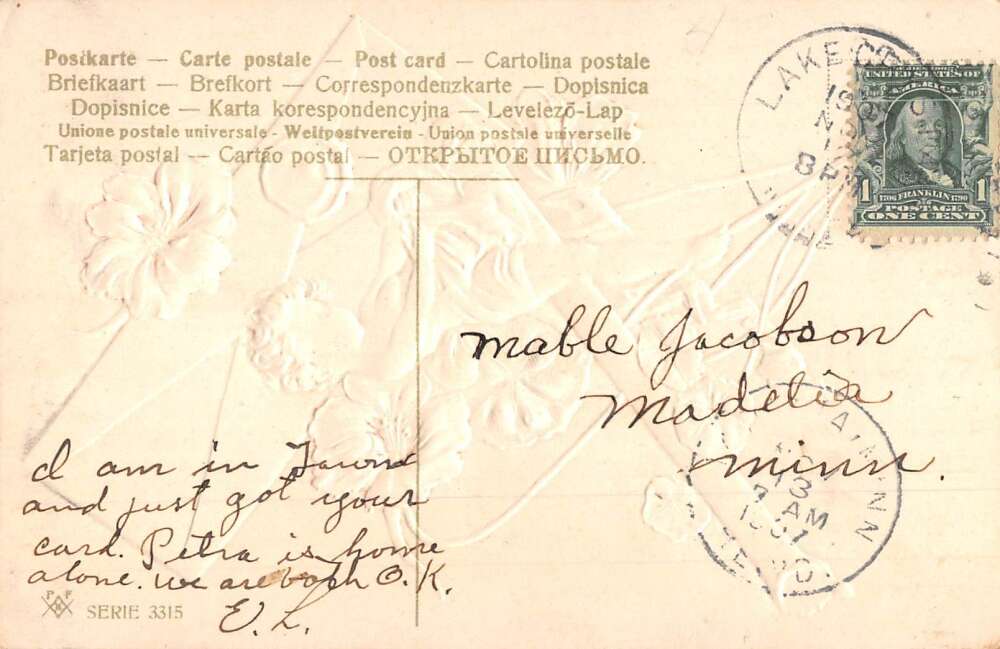 Postkarte — Carte postale — Post card — Cartolina postale
Briefkaart — Brefkort — Correspondenzkarte — Dopisnica
Dopisnice — Karta korespondencyjna — Levelező-Lap
Unione postale universale - Weltpostverein - Union postale universelle
Tarjeta postal — Cartão postal — ОТКРЫТОЕ ПИСЬМО.
LAKE
8 PM
UNITED STATES OF
AMERICA
1 1
1706 FRANKLIN 1790
POSTAGE
ONE CENT
Mable Jacobson
Madelia
Minn.
A, MINN
13
7 AM
1907
I am in Town
and just got your
card. Petra is home
alone. we are both O.K.
E.L.
P F
SERIE 3315